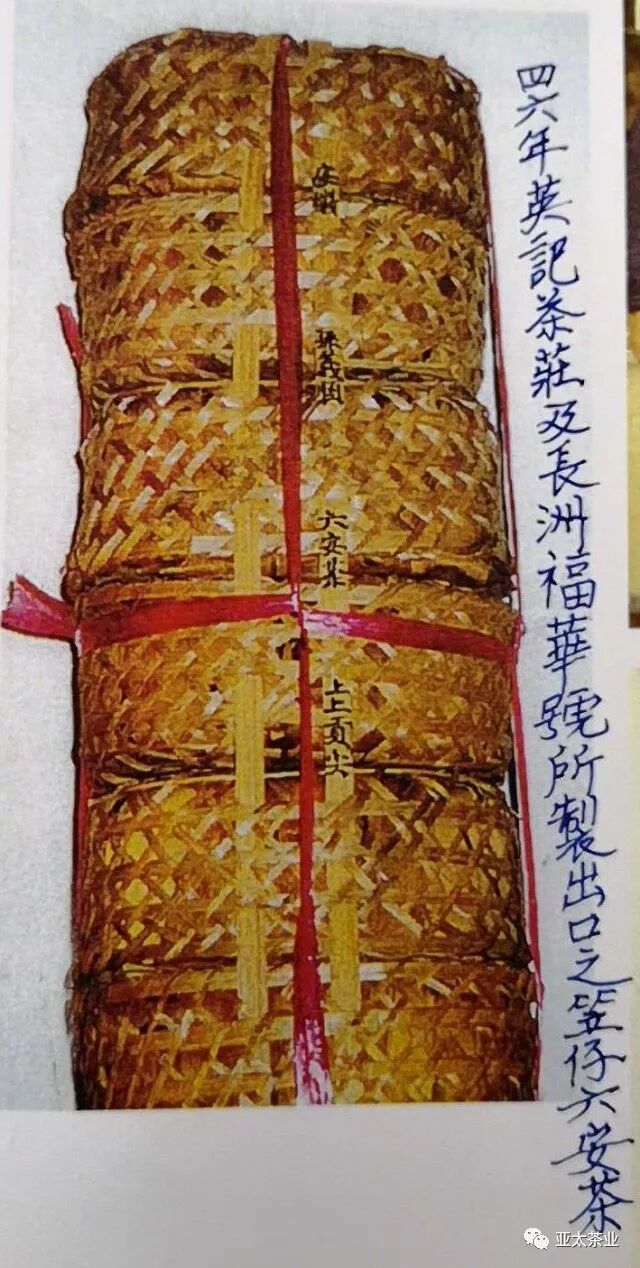 四六年英記茶莊及長洲福華號所製出口之笠仔六安茶
孫義順
六安茶
上上貢尖
亚太茶业